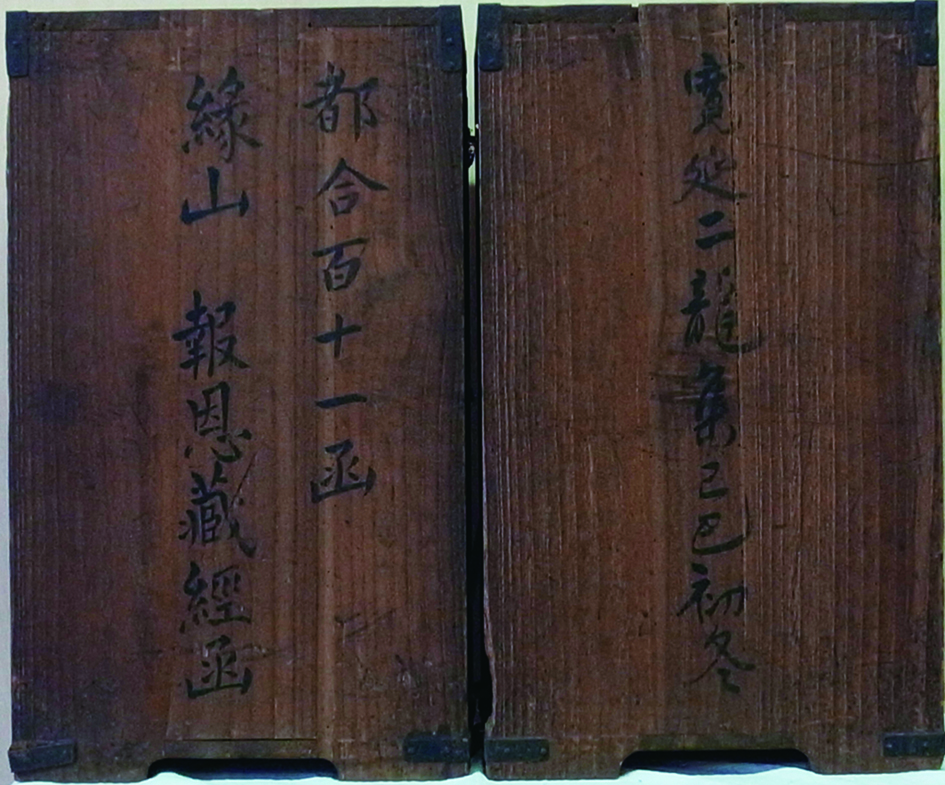 寛延二龍集己巳初冬
都合百十一函
縁山 報恩藏經函